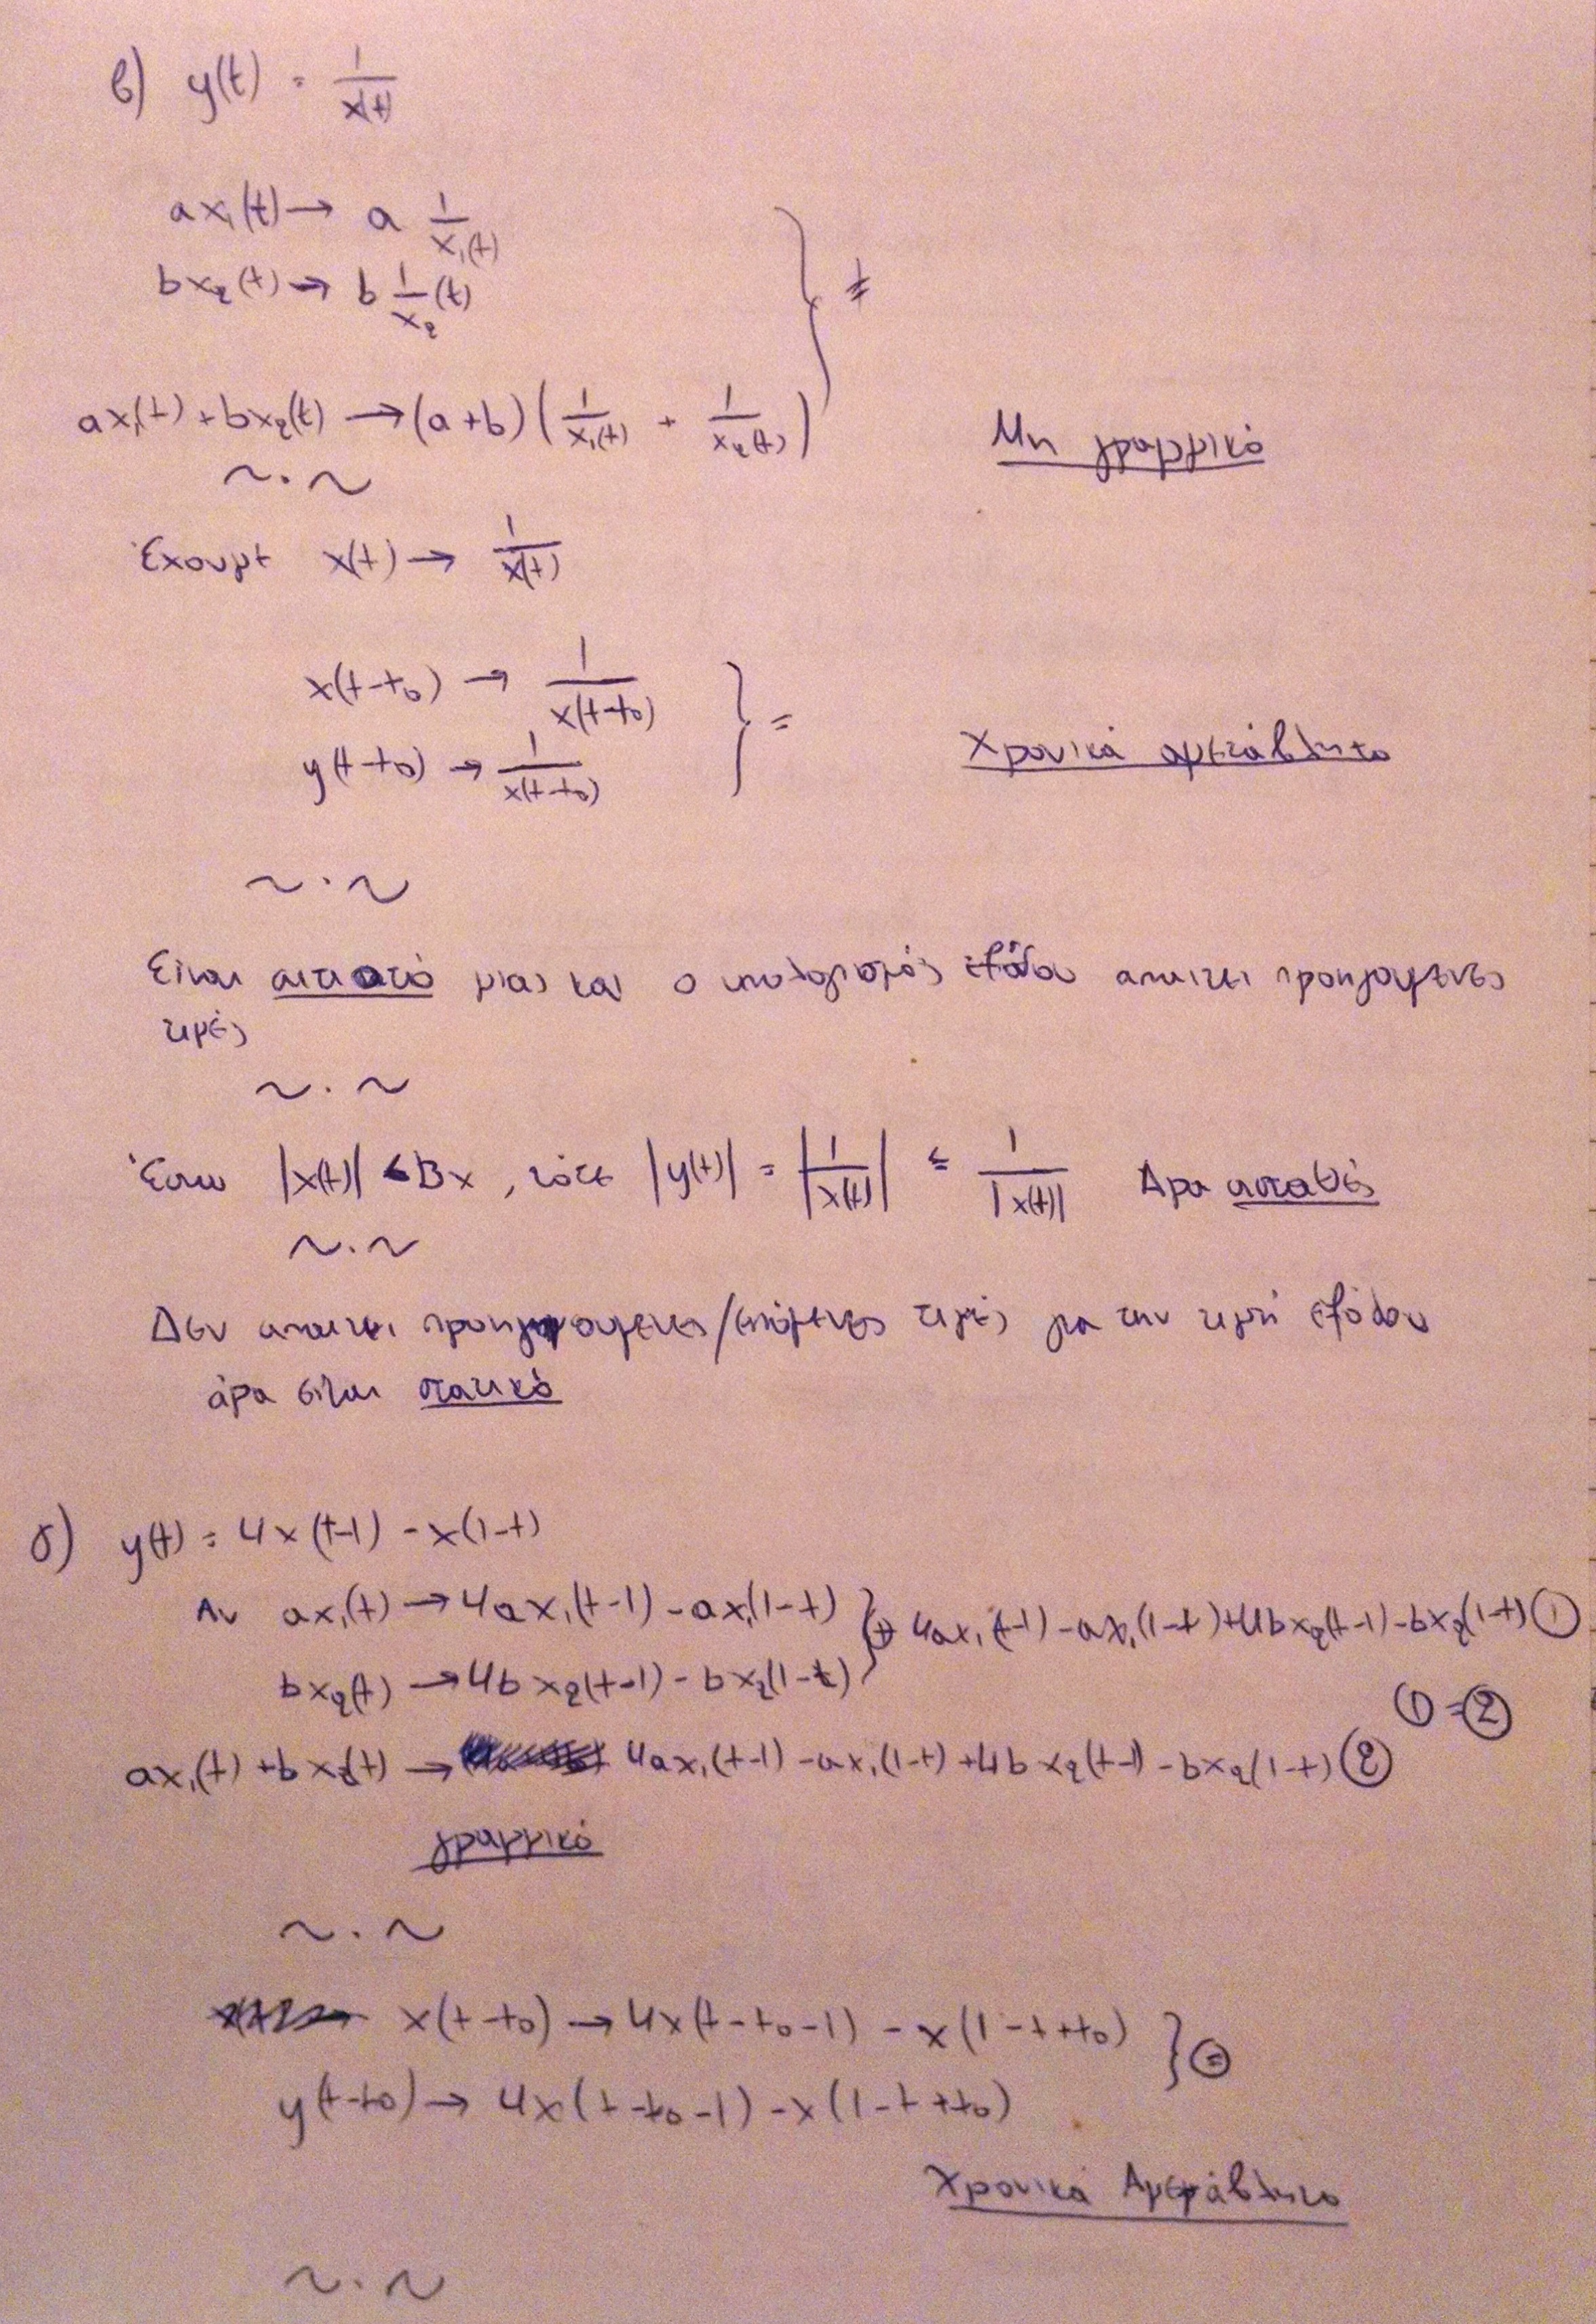 β) y(t) = 1/x(t)
ax₁(t) → a 1/x₁(t)
bx₂(t) → b 1/x₂ (t)
} ≠
ax₁(t) + bx₂(t) → (a+b) ( 1/x₁(t) + 1/x₂(t) )
Μη γραμμικό
~.~
Έχουμε x(t) → 1/x(t)
x(t-t₀) → 1/x(t-t₀)
y(t-t₀) → 1/x(t-t₀)
} =
Χρονικά αμετάβλητο
~.~
Είναι αιτιατό μιας και ο υπολογισμός εξόδου απαιτεί προηγουμενες
τιμές
~.~
Έστω |x(t)| ≤ Bx , τότε |y(t)| = |1/x(t)| ≤ 1/|x(t)| Αρα ασταθές
~.~
Δεν απαιτει προηγουμενες/επόμενες τιμές για την τιμή εξόδου
άρα είναι στατικό
δ) y(t) = 4x(t-1) - x(1-t)
Αν ax₁(t) → 4ax₁(t-1) - ax₁(1-t)
bx₂(t) → 4bx₂(t-1) - bx₂(1-t)
} (+) 4ax₁(t-1) - ax₁(1-t) + 4bx₂(t-1) - bx₂(1-t) ①
① = ②
ax₁(t) + bx₂(t) → 4ax₁(t-1) - ax₁(1-t) + 4bx₂(t-1) - bx₂(1-t) ②
γραμμικό
~.~
x(t-t₀) → 4x(t-t₀-1) - x(1-t+t₀)
y(t-t₀) → 4x(t-t₀-1) - x(1-t+t₀)
} ⊜
Χρονικά Αμετάβλητο
~.~